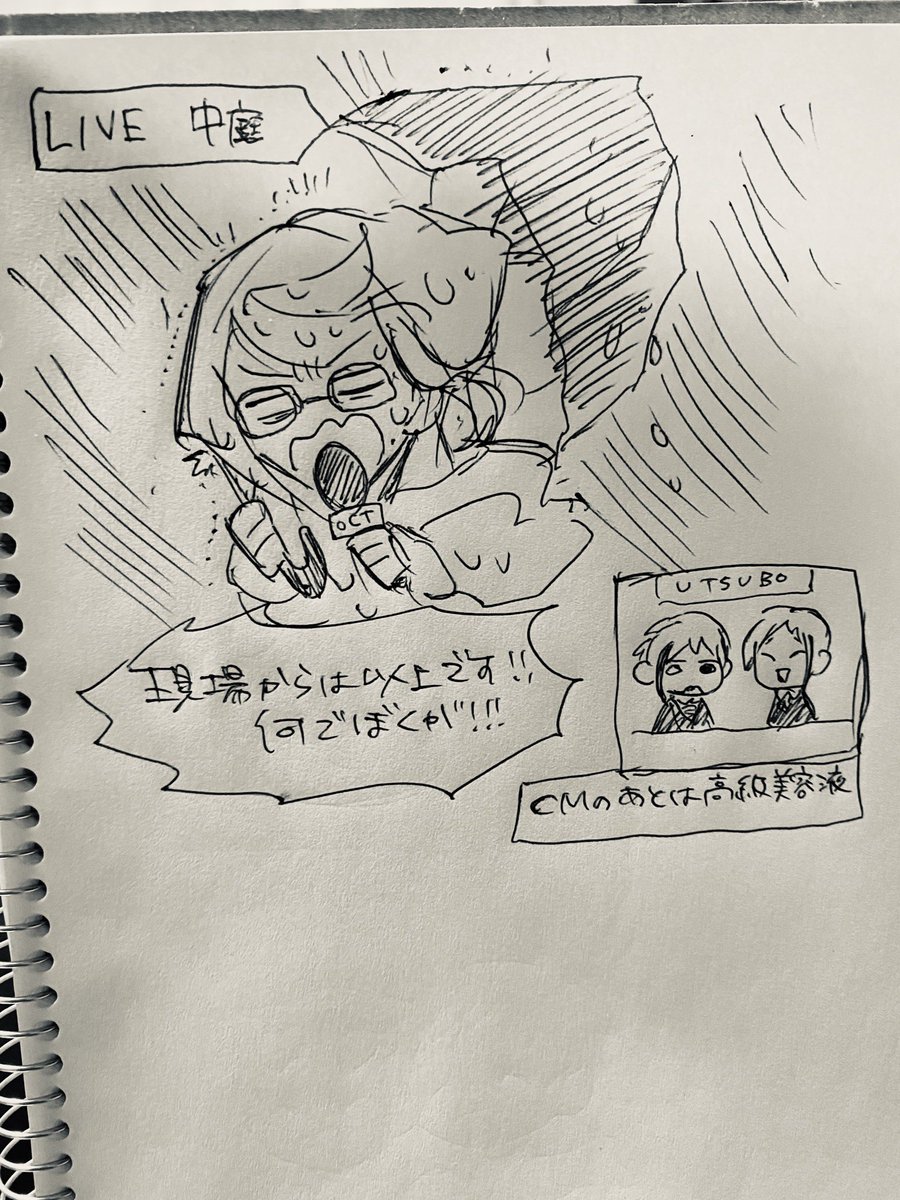 LIVE 中庭
OCT
現場からは以上です!!
何でぼくが!!!
UTSUBO
CMのあとは高級美容液